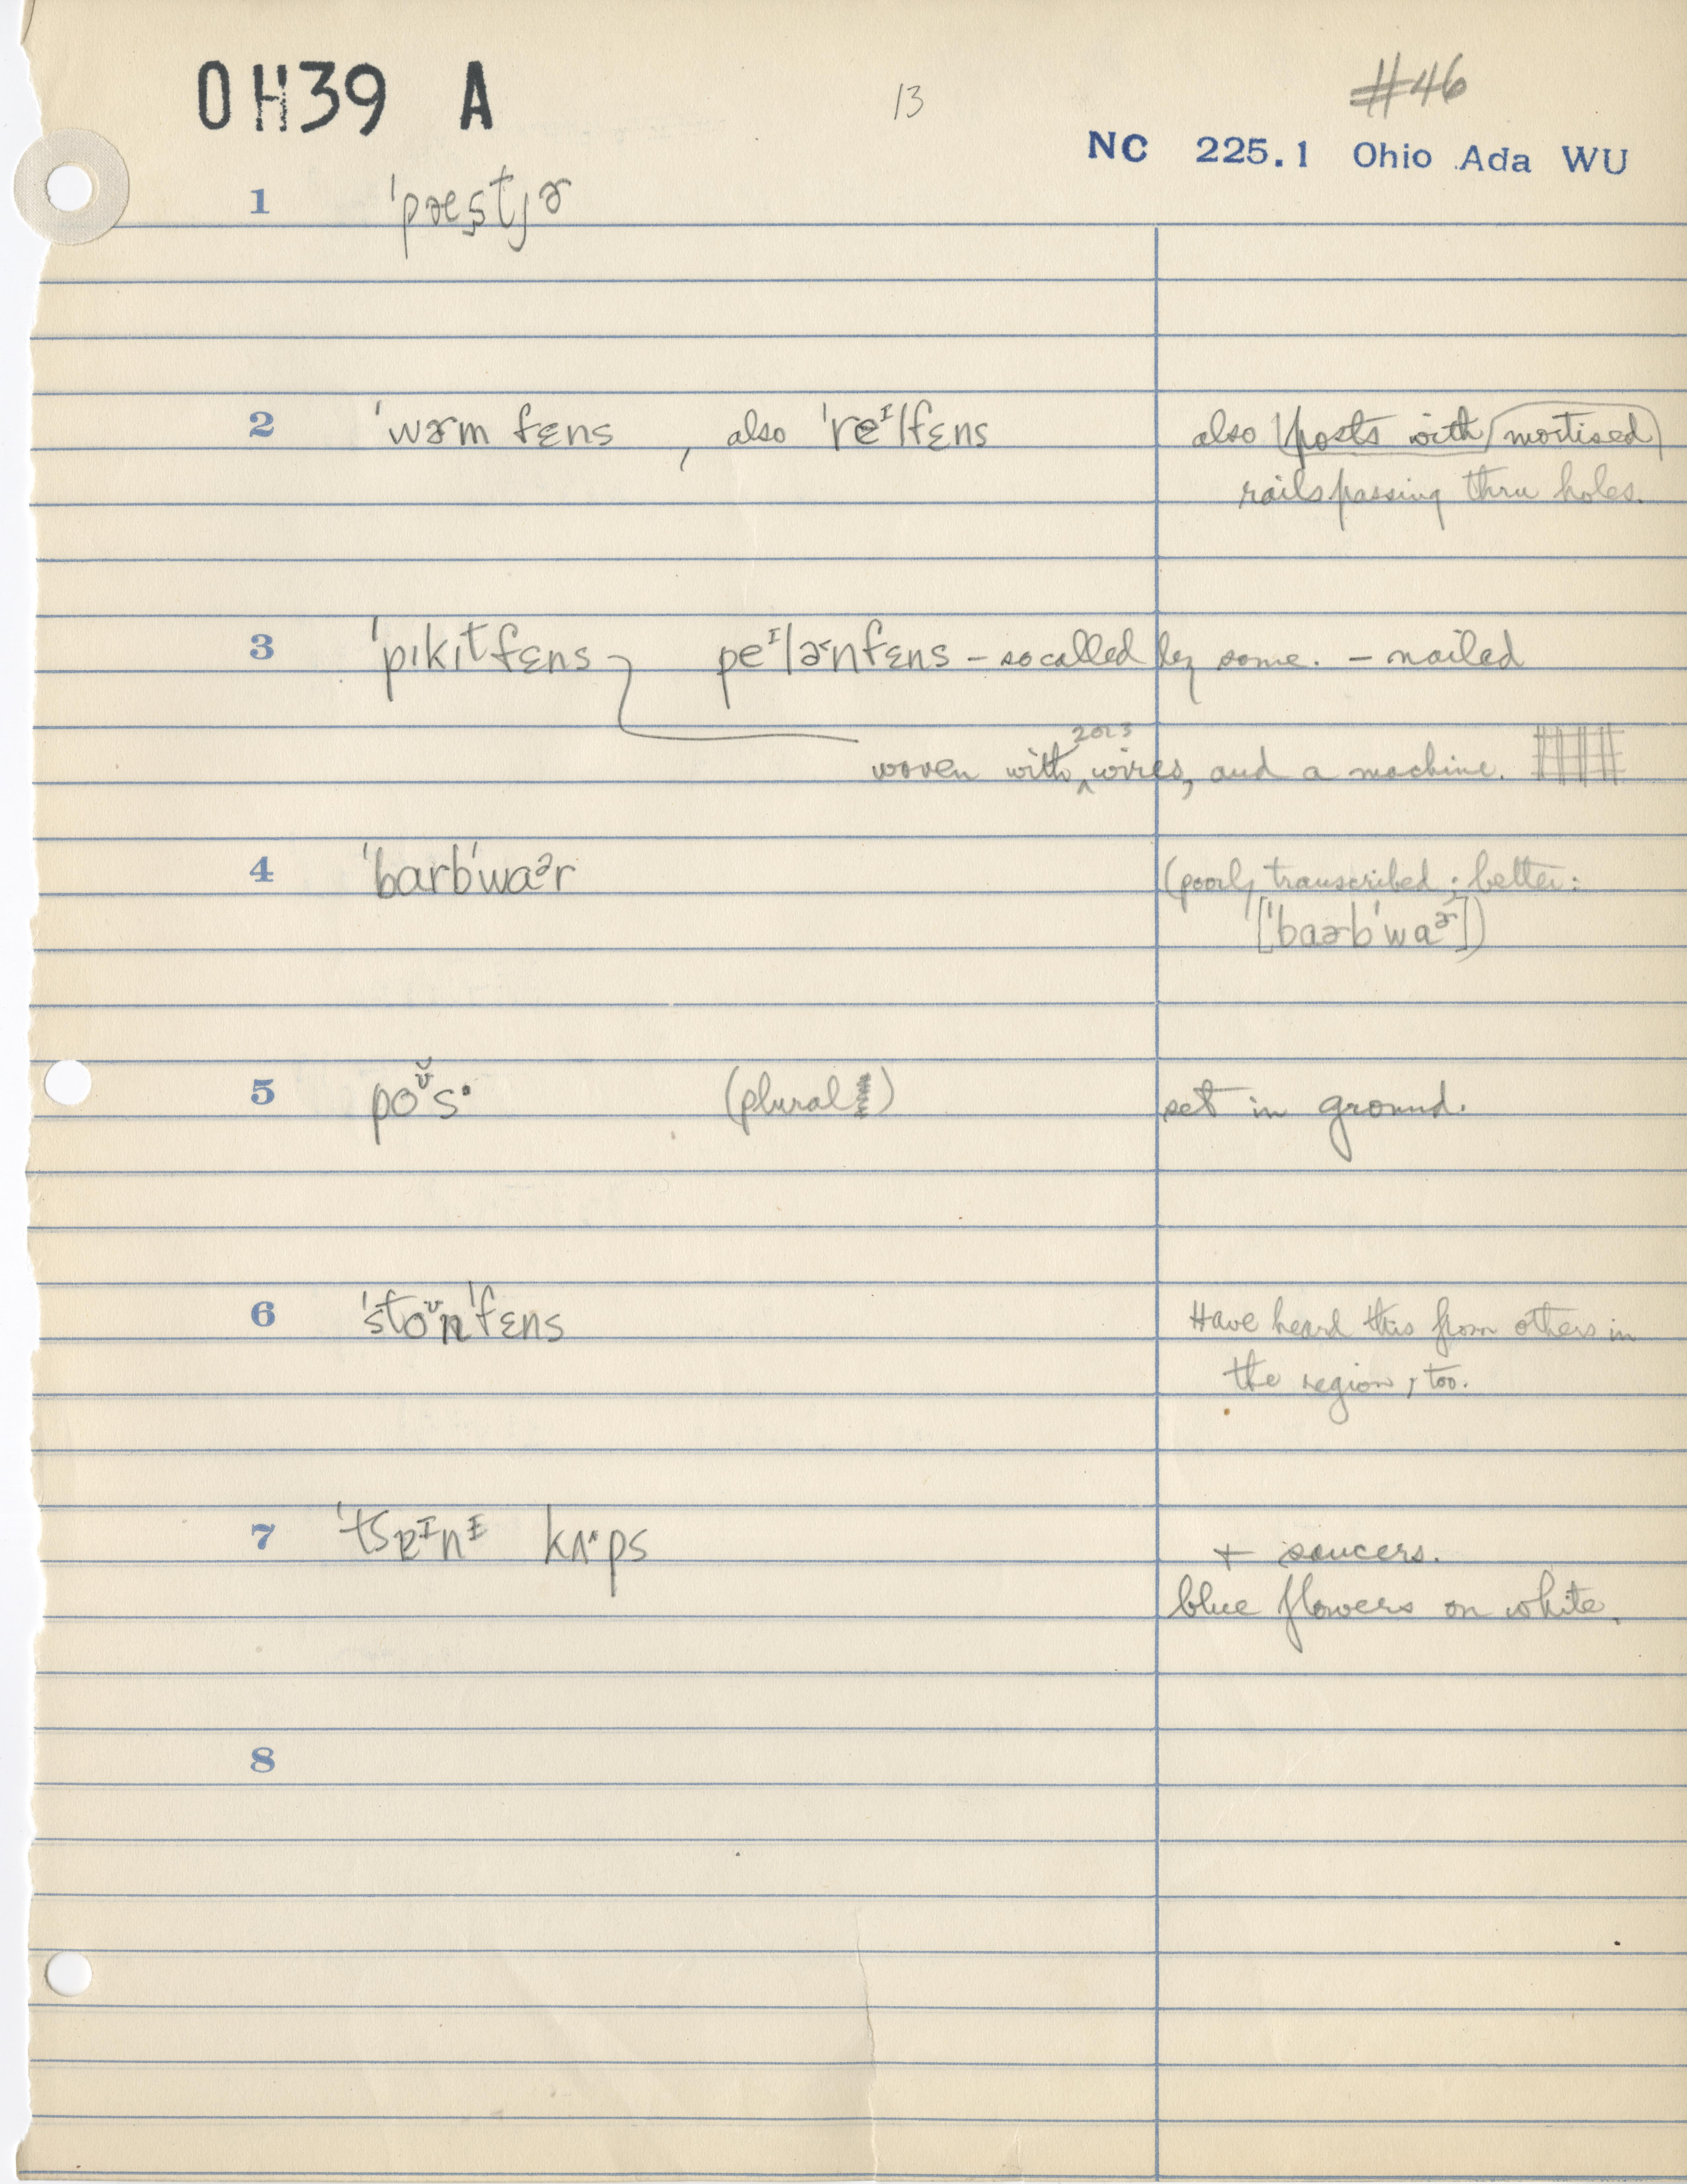 OH39 A
13
#46
NC 225.1 Ohio Ada WU
1 ˈpæs̬tjɚ
2 ˈwɚm fɛns , also ˈreᶦlfɛns also posts with mortised
rails passing thru holes.
3 ˈpɪkɪtfɛns peᶦlɚnfɛns – so called by some. – nailed
2 or 3
woven with ‸ wires, and a machine.
4 ˈbarbˈwaᵊr (poorly transcribed; better:
[ˈbaɚbˈwaᵊ˞])
5 poᶷ̆s· (plural) set in ground.
6 ˈstoᶷ̆nˈfɛns Have heard this from others in
the region, too.
7 kʌ˄ps + saucers.
blue flowers on white.
8